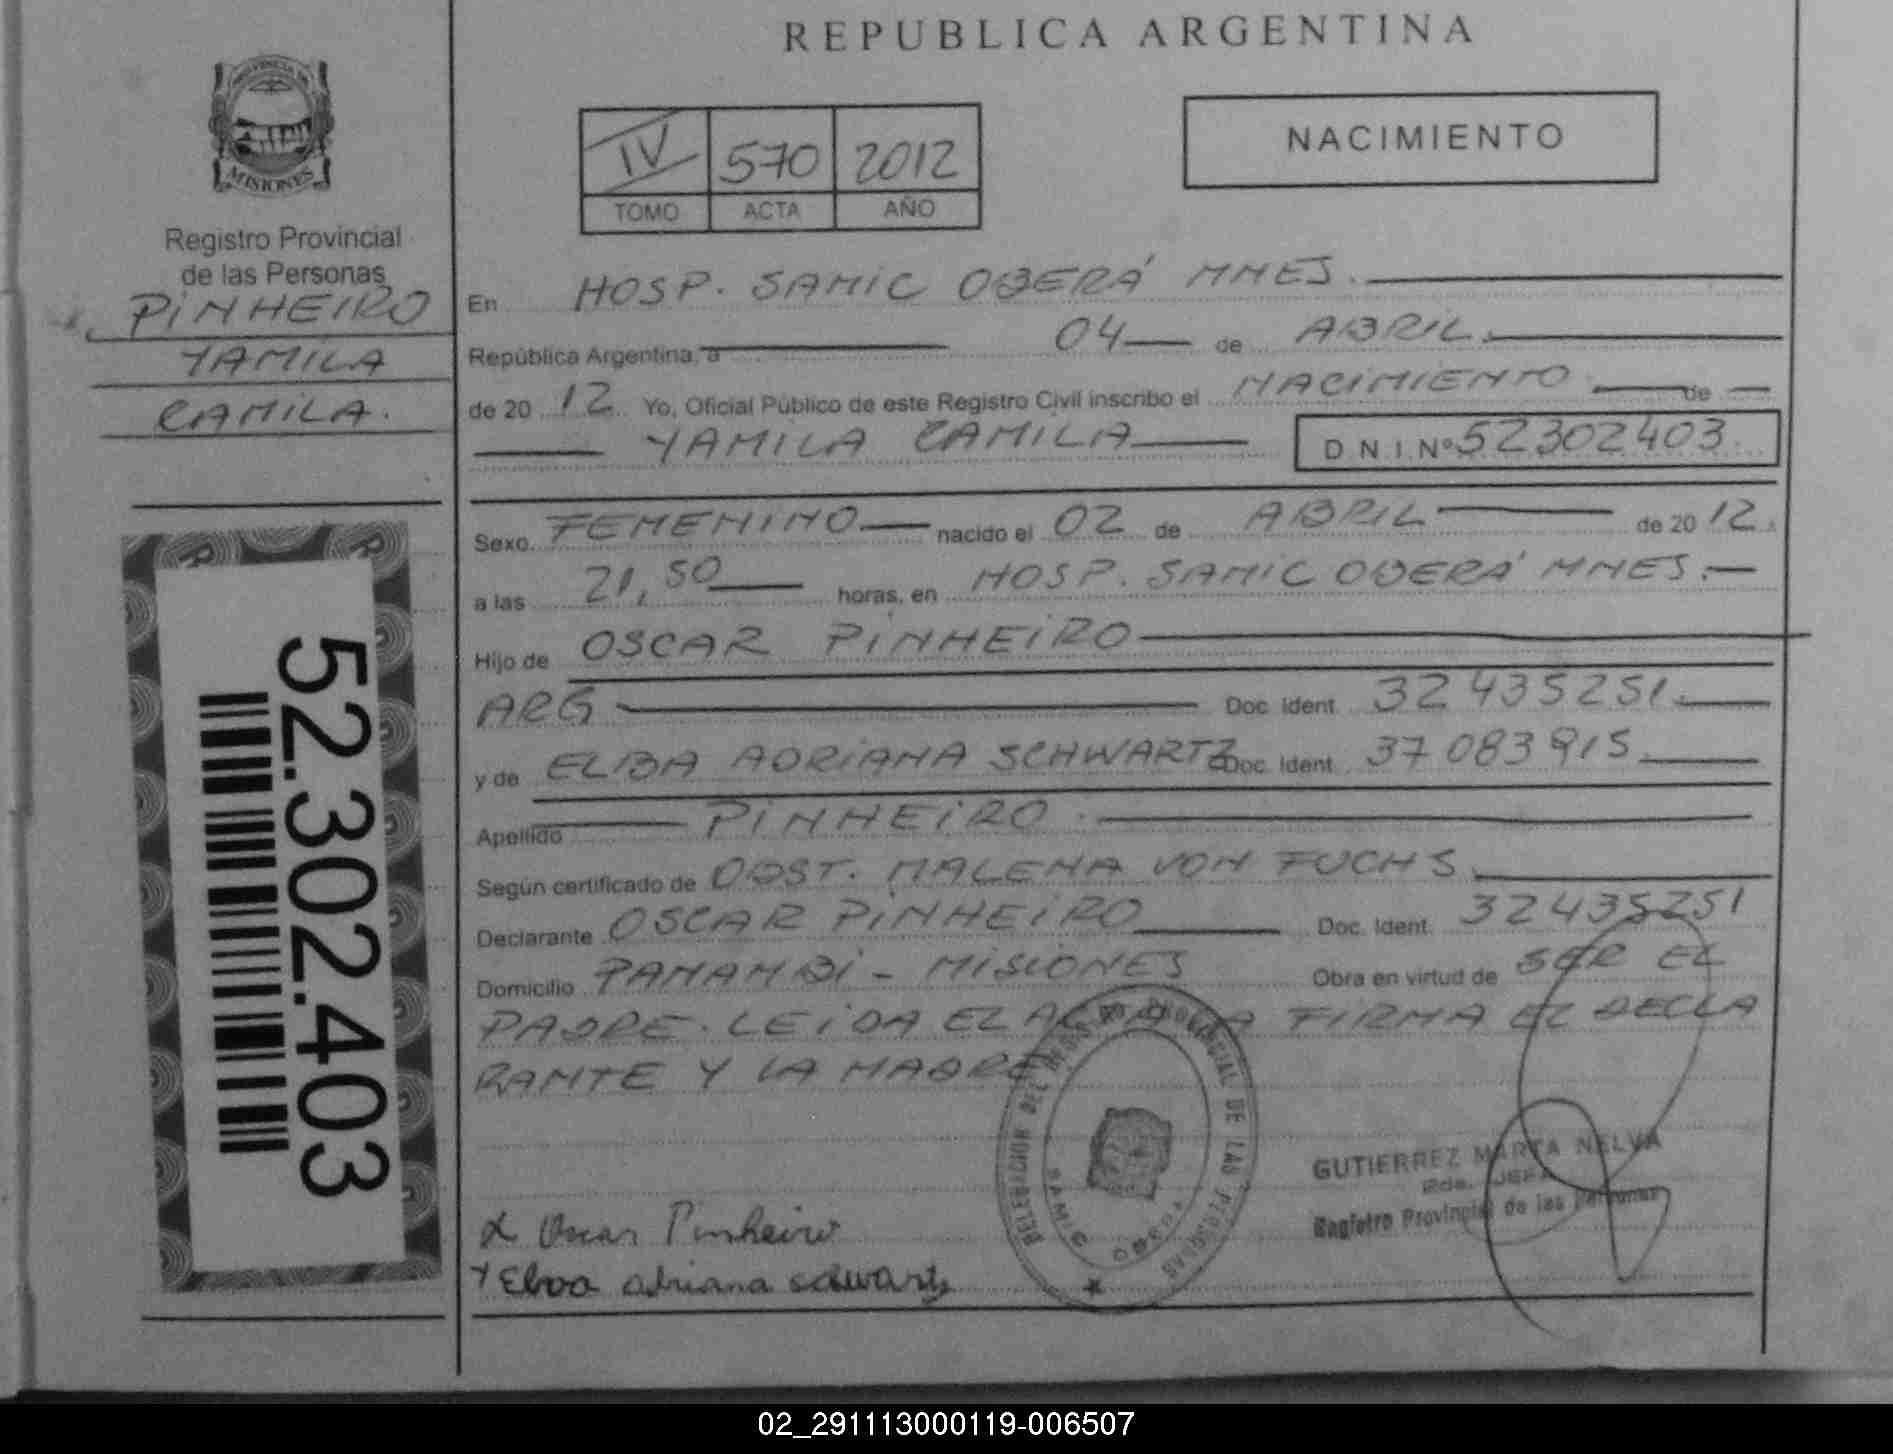 REPUBLICA ARGENTINA
PROVINCIA DE
MISIONES
Registro Provincial
de las Personas
PINHEIRO
YAMILA
CAMILA.
52.302.403
IV 570 2012
TOMO ACTA AÑO
NACIMIENTO
En HOSP. SAMIC OBERÁ MNES.
República Argentina, a 04 de ABRIL.
de 20 12 Yo, Oficial Público de este Registro Civil inscribo el NACIMIENTO de
YAMILA CAMILA D.N.I.Nº 52302403.
Sexo FEMENINO nacido el 02 de ABRIL de 20 12.
a las 21,50 horas, en HOSP. SAMIC OBERÁ MNES.
Hijo de OSCAR PINHEIRO
ARG Doc. Ident. 32 435251.
y de ELBA ADRIANA SCHWARTZ Doc. Ident. 37 083915.
Apellido PINHEIRO.
Según certificado de OBST. MALENA VON FUCHS.
Declarante OSCAR PINHEIRO Doc. Ident. 32435251
Domicilio PANAMBI - MISIONES Obra en virtud de SER EL
PADRE. LEIDA EL ACTA LA FIRMA EL DECLA
RANTE Y LA MADRE.
DELEGACION DEL REGISTRO PROVINCIAL DE LAS PERSONAS
SAMIC OBERA
GUTIERREZ MARTA NELVA
JEFA
Registro Provincial de las Personas
x Oscar Pinheiro
x Elva adriana schwartz
02_291113000119-006507